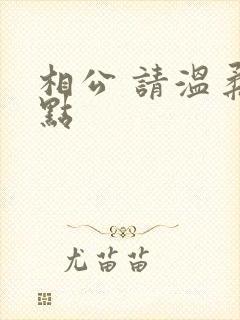 相公 請溫柔
點
尤苗苗